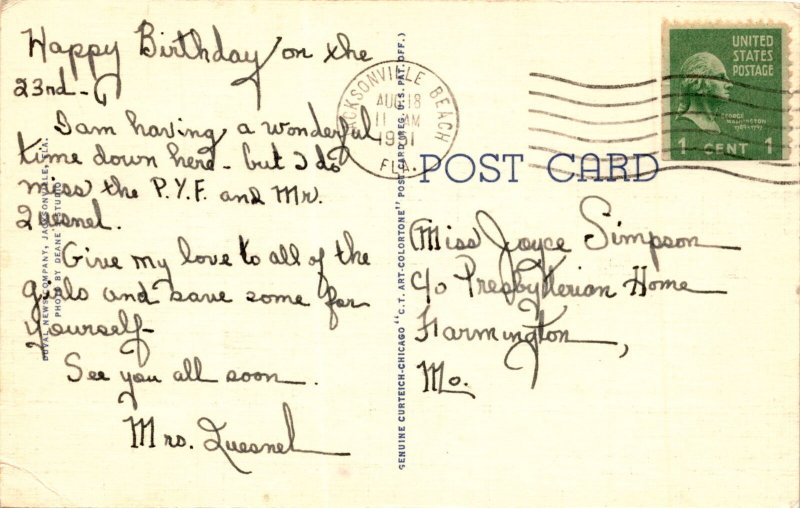 Happy Birthday on the
23nd-
I am having a wonderful
time down here - but I do
miss the P.Y.F. and Mr.
Quesnel.
Give my love to all of the
girls and save some for
yourself-
See you all soon.
Mrs. Quesnel
DUVAL NEWS COMPANY, JACKSONVILLE, FLA.
PHOTO BY DEANE STUDIO
GENUINE CURTEICH-CHICAGO "C.T. ART-COLORTONE" POST CARD (REG. U.S. PAT. OFF.)
JACKSONVILLE BEACH
AUG 18
11 AM
1951
FLA.
UNITED
STATES
POSTAGE
GEORGE
WASHINGTON
1789-1797
1 CENT 1
POST CARD
Miss Joyce Simpson
c/o Presbyterian Home
Farmington,
Mo.